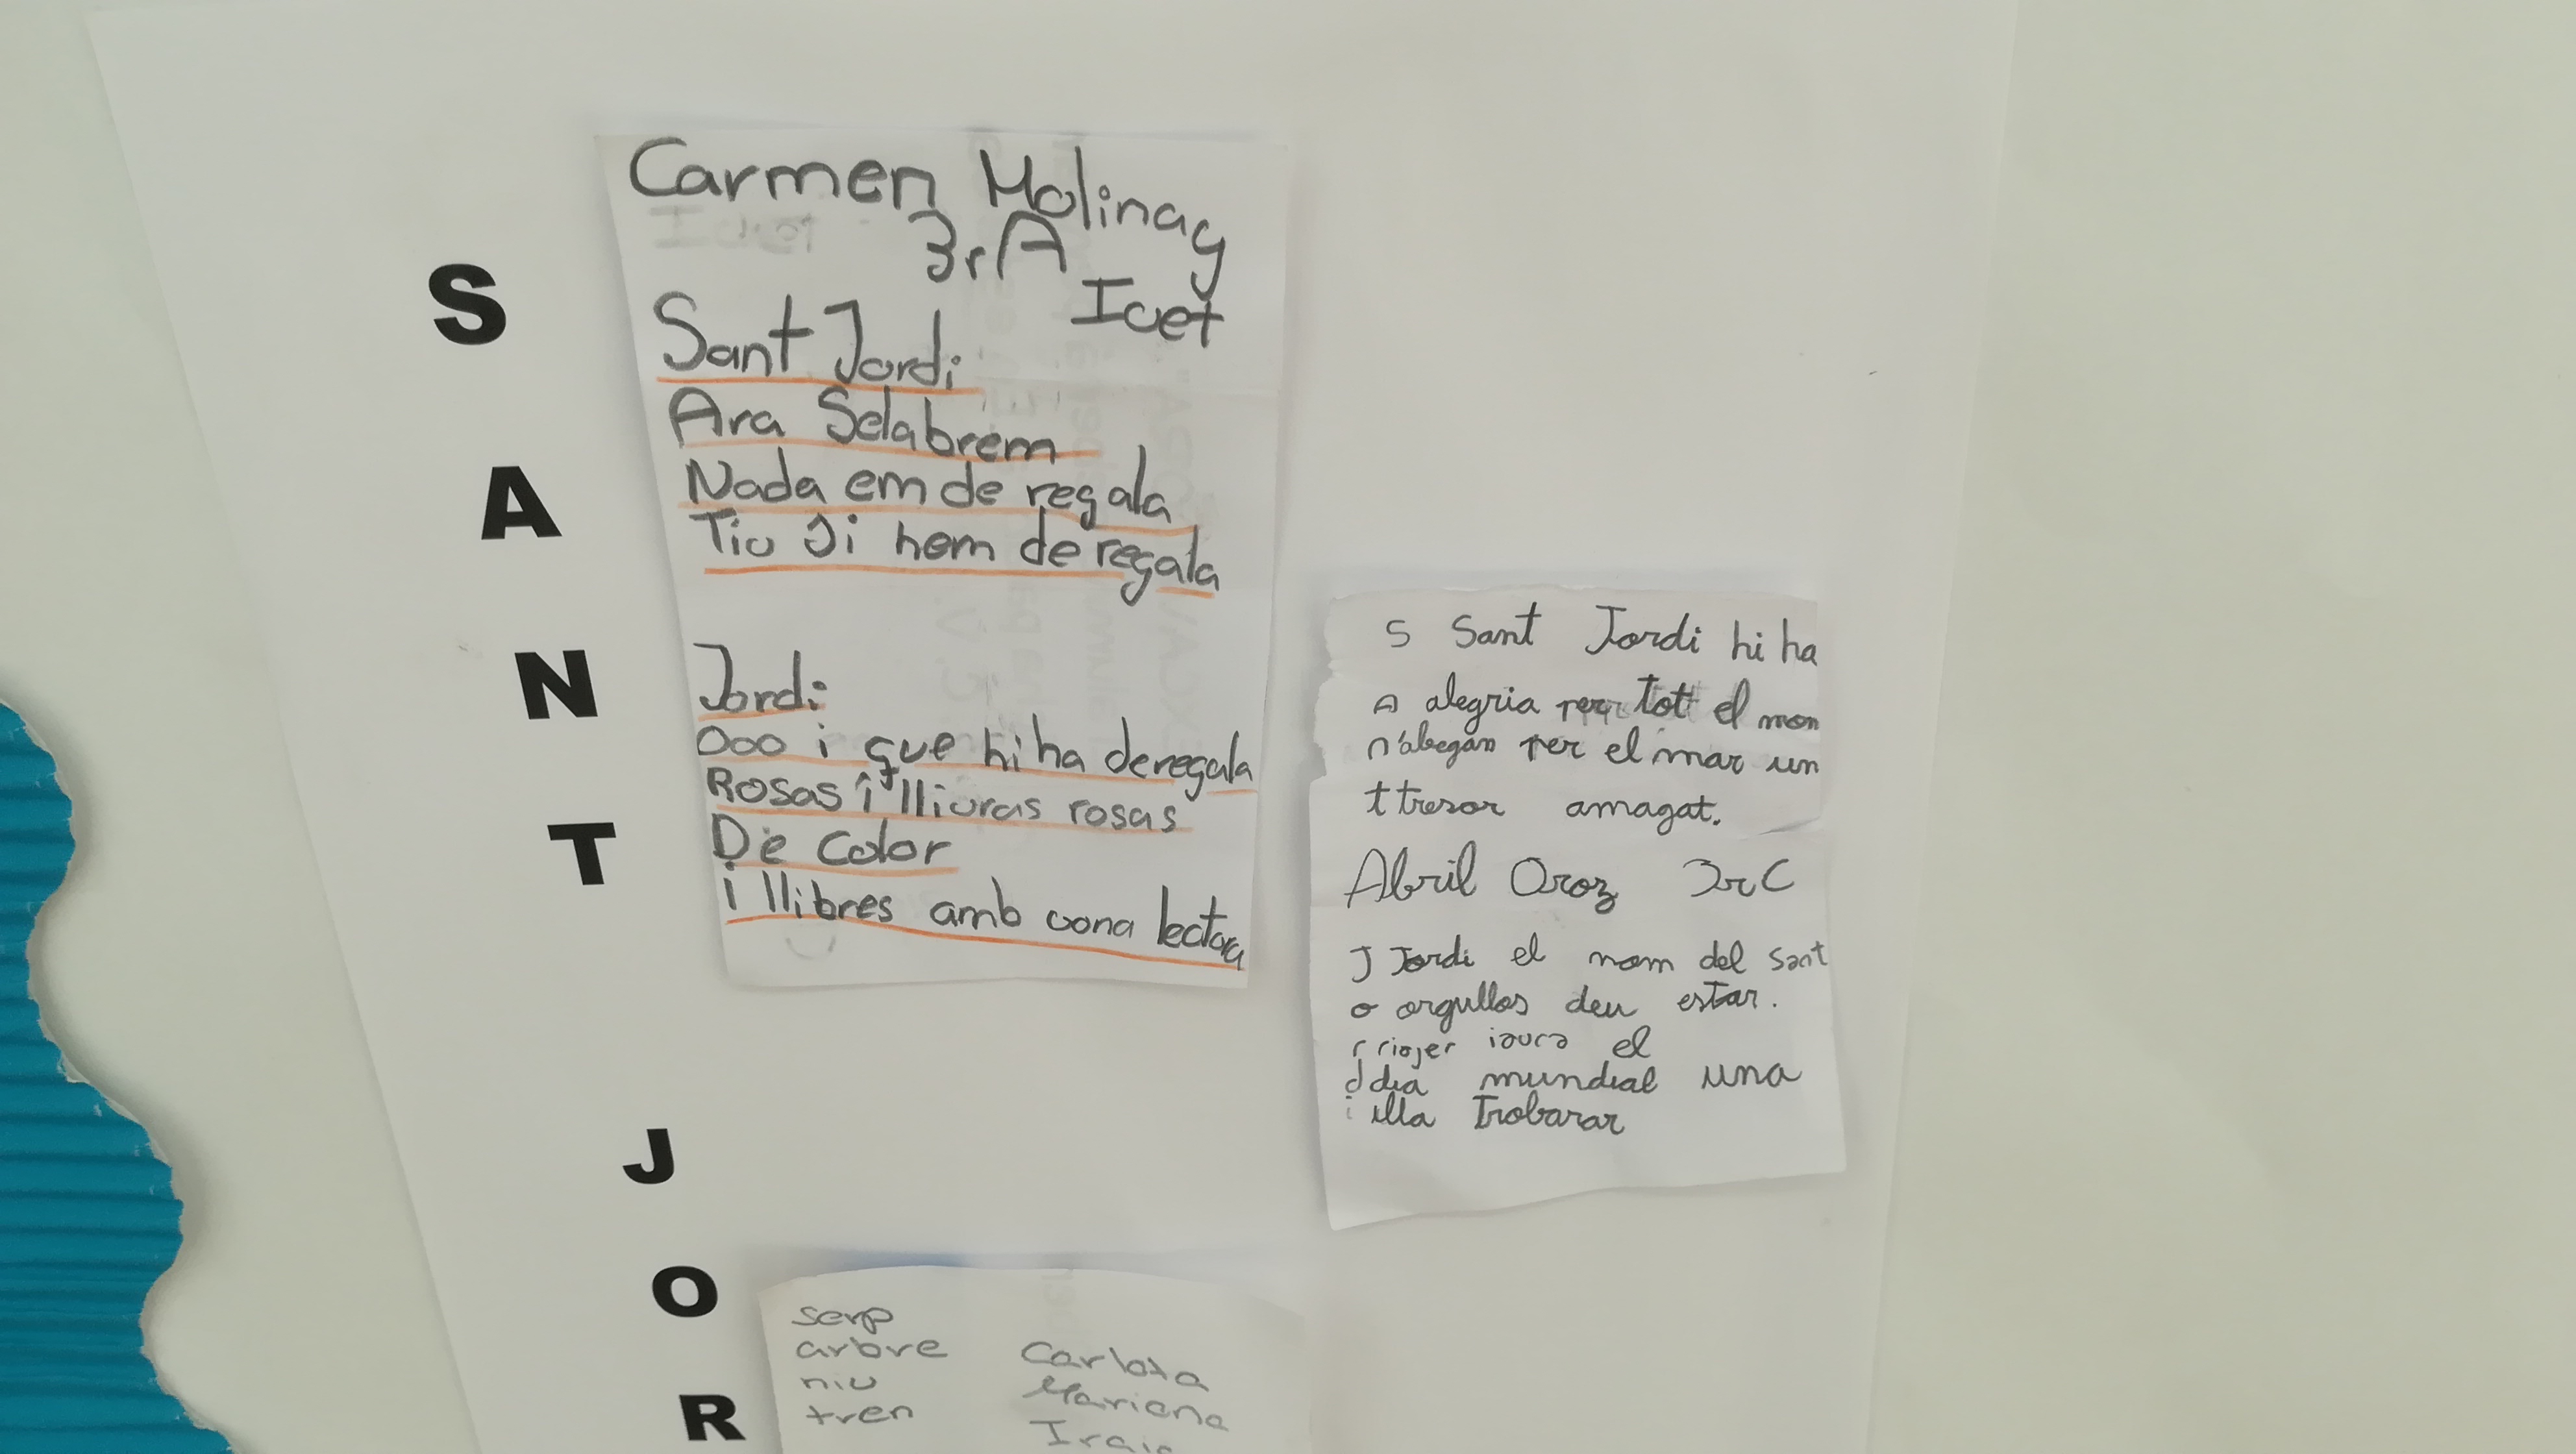 S
A
N
T
J
O
R
Carmen Molina y
3r A
Icet
Sant Jordi
Ara Selabrem
Nada em de regala
Tiu Si hem de regala
Jordi
Ooo i que hi ha deregala
Rosas i lliuras rosas
De color
i llibres amb uona lectora
s Sant Jordi hi ha
A alegria per tot el mon
n'abegan per el mar un
t tresor amagat.
Abril Oroz 3r C
J Jordi el nom del sant
o orgullos deu estar.
r el
d dia mundial una
i illa Trobarar
serp
arbre
niu
tren
Carlota
Mariona